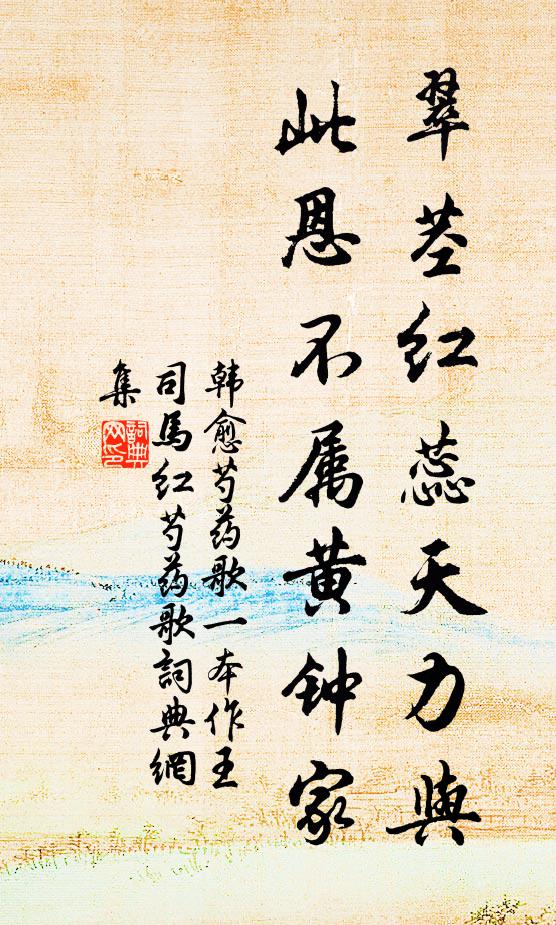 翠茎红蕊天力與
此恩不属黄钟家
韩愈芍药歌一本作王
司馬红芍药歌詞典網
集
詞典網印